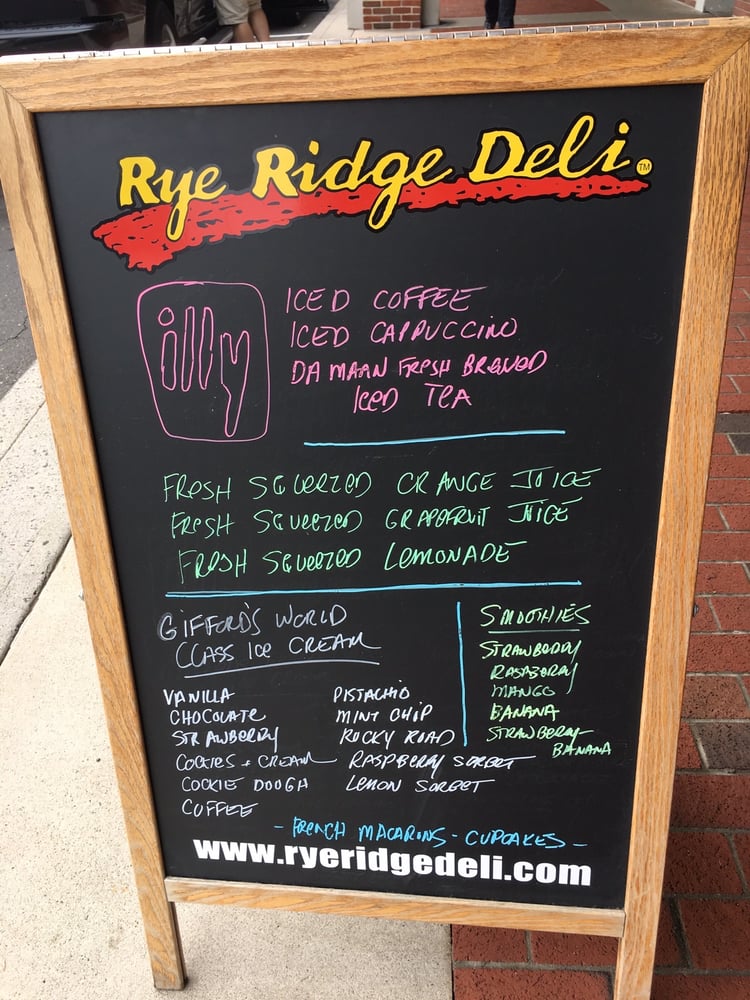 Rye Ridge Deli TM
illy
ICED COFFEE
ICED CAPPUCCINO
DAMAAN FRESH BREWED
ICED TEA
FRESH SQUEEZED ORANGE JUICE
FRESH SQUEEZED GRAPEFRUIT JUICE
FRESH SQUEEZED LEMONADE
GIFFORD'S WORLD
CLASS ICE CREAM
VANILLA
CHOCOLATE
STRAWBERRY
COOKIES + CREAM
COOKIE DOUGH
COFFEE
PISTACHIO
MINT CHIP
ROCKY ROAD
RASPBERRY SORBET
LEMON SORBET
SMOOTHIES
STRAWBERRY
RASPBERRY
MANGO
BANANA
STRAWBERRY
BANANA
- FRENCH MACARONS - CUPCAKES -
www.ryeridgedeli.com